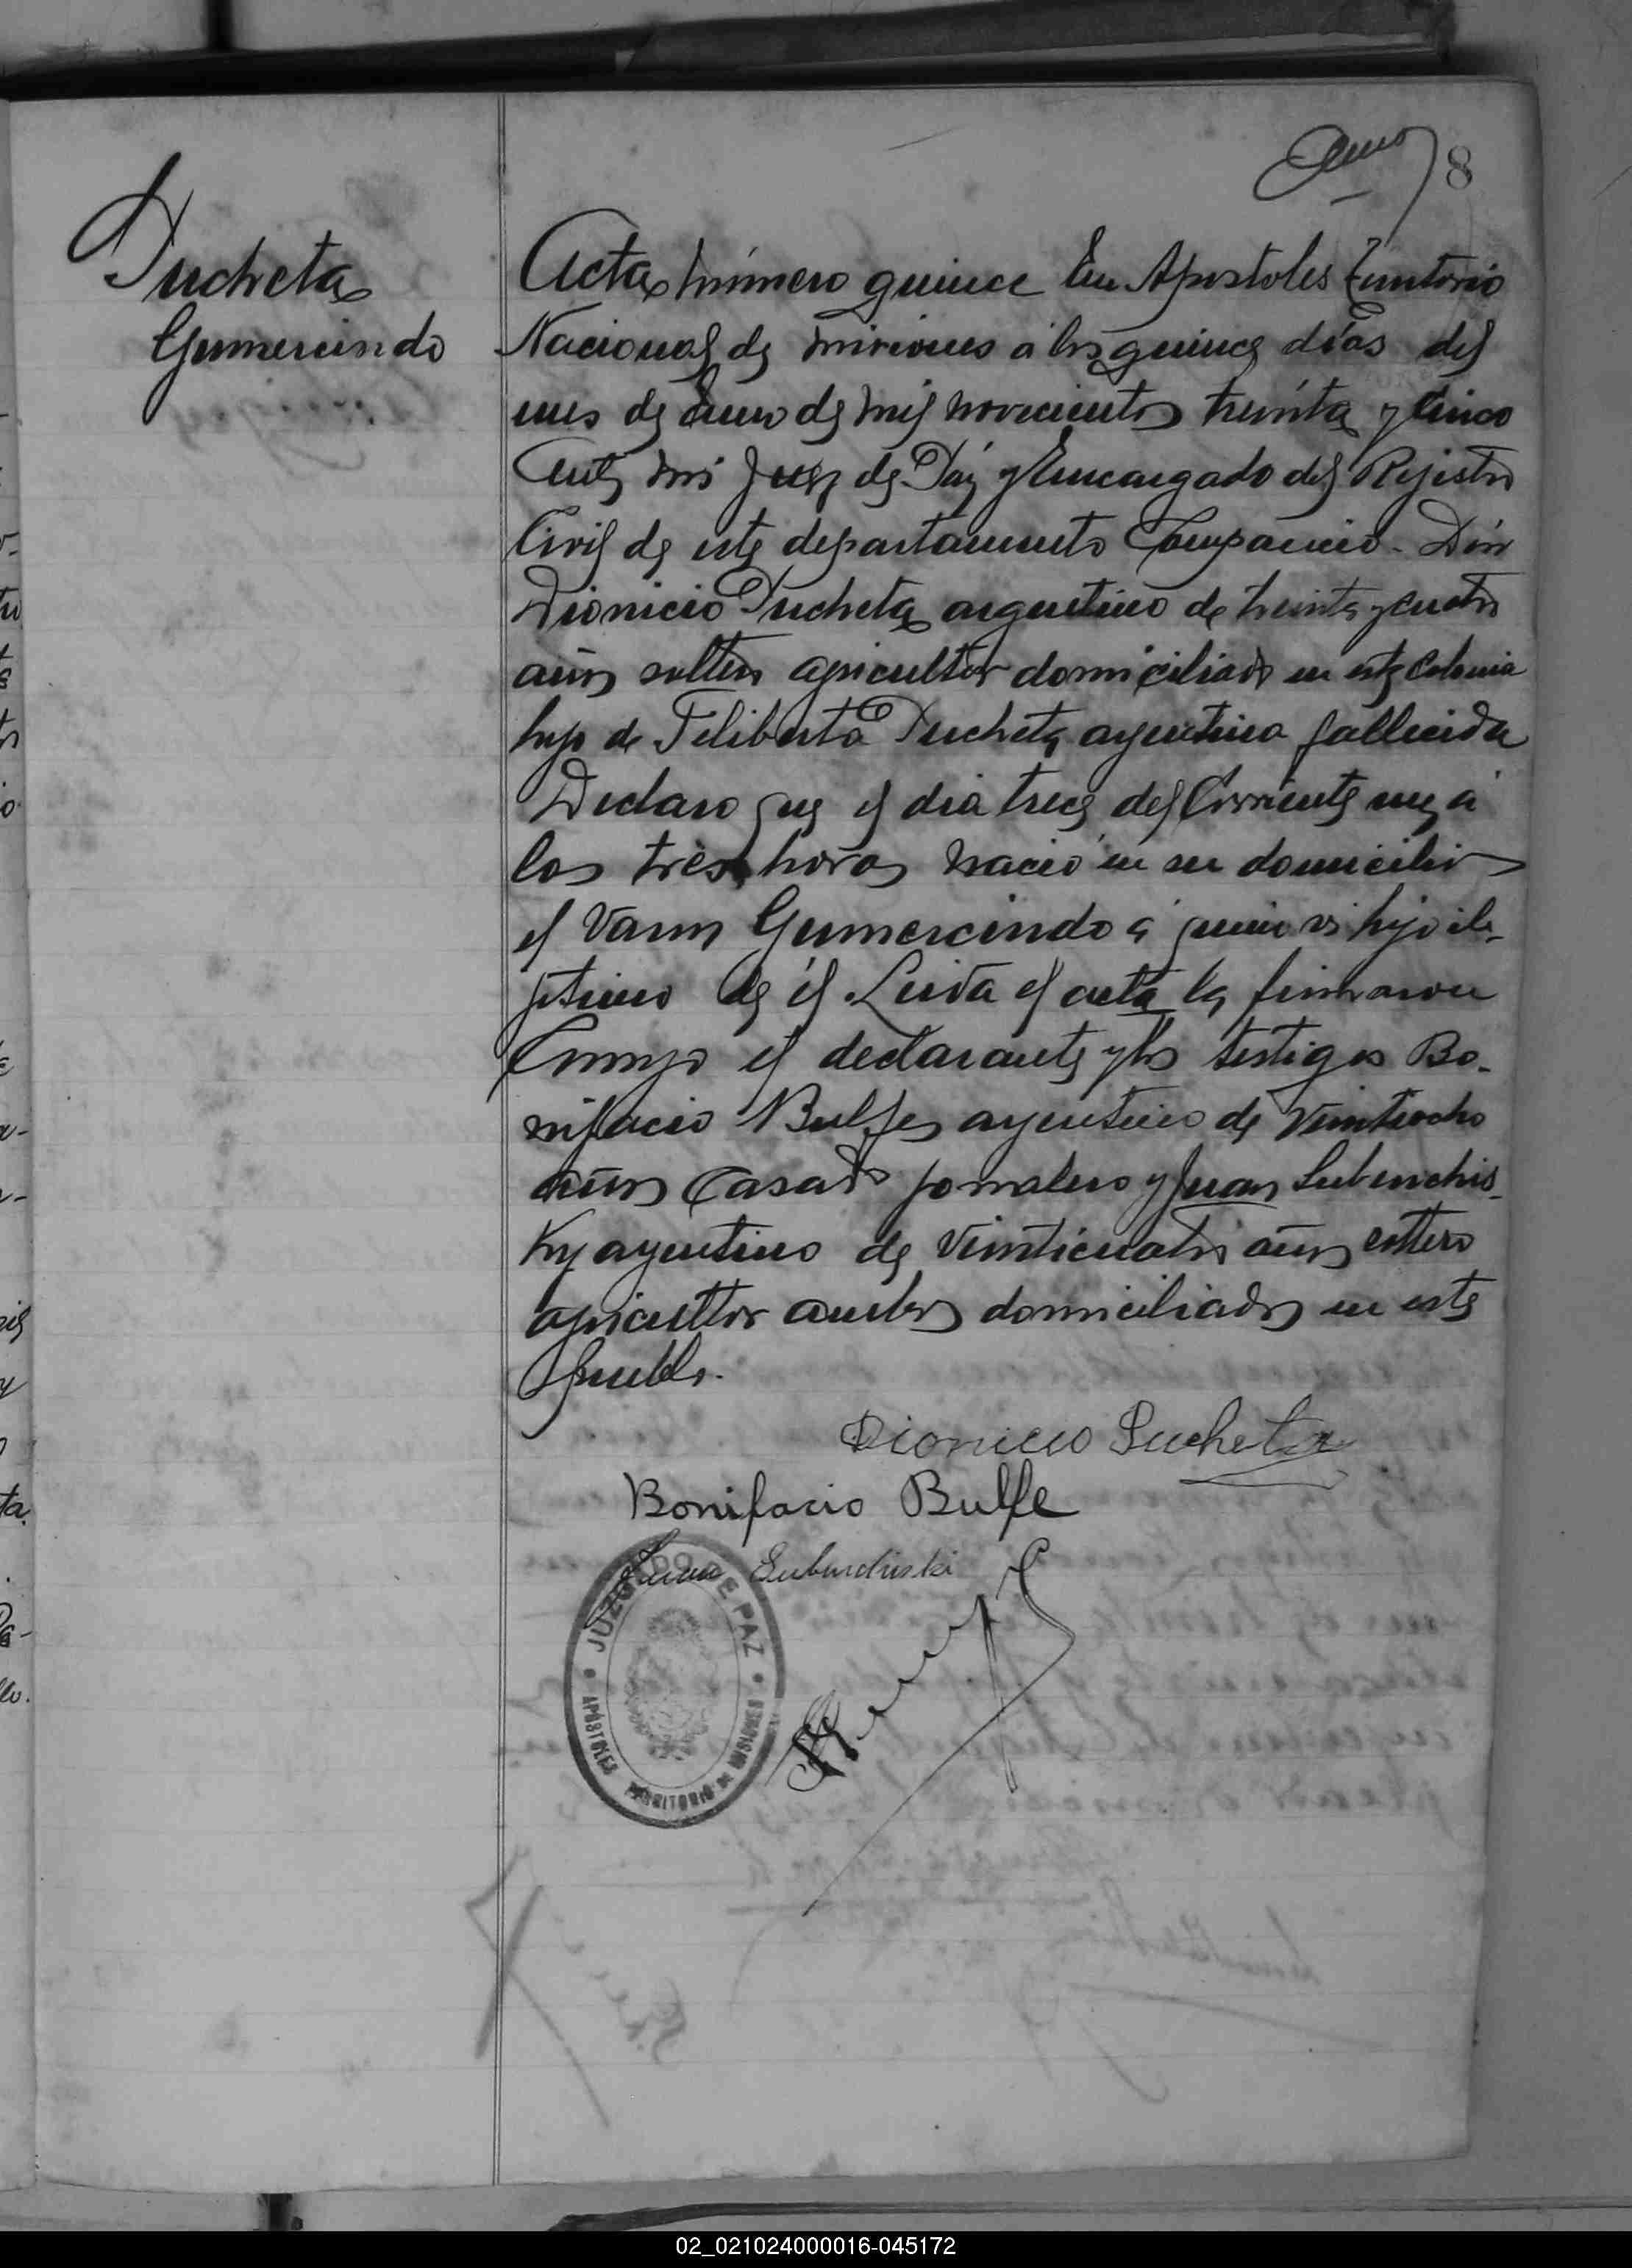 8
Pucheta
Gumercindo
Acta número quince En Apostoles Territorio
Nacional de Misiones a los quince días del
mes de Enero de mil novecientos treinta y cinco
Ante mi Juez de Paz y Encargado del Rejistro
Civil de este departamento Comparecio Don
Dionicio Pucheta argentino de treinta y cuatro
años soltero agricultor domiciliado en esta Colonia
hijo de Feliberta Pucheta argentina fallecida
Declaro que el dia trece del Corriente mes a
las tres horas nacio en su domicilio
el Varon Gumercindo a quien es hijo ile-
jitimo de él Leida el acta la firmaron
Conmigo el declarante y los testigos Bo-
nifacio Bulfe argentino de Veintiocho
años Casado jornalero y Juan Lubenchis-
ky argentino de Veinticuatro años soltero
agricultor ambos domiciliados en este
pueblo.
Dionicio Pucheta
Bonifacio Bulfe
Juan
JUZGADO DE PAZ
APÓSTOLES TERRITORIO DE MISIONES
02_021024000016-045172